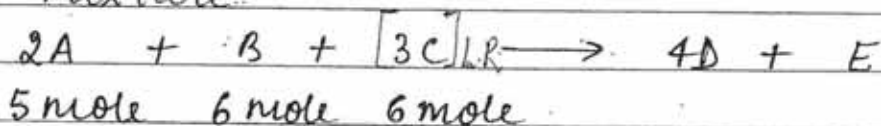 2A + B + [3C]L.R → 4D + E
5 mole 6 mole 6 mole